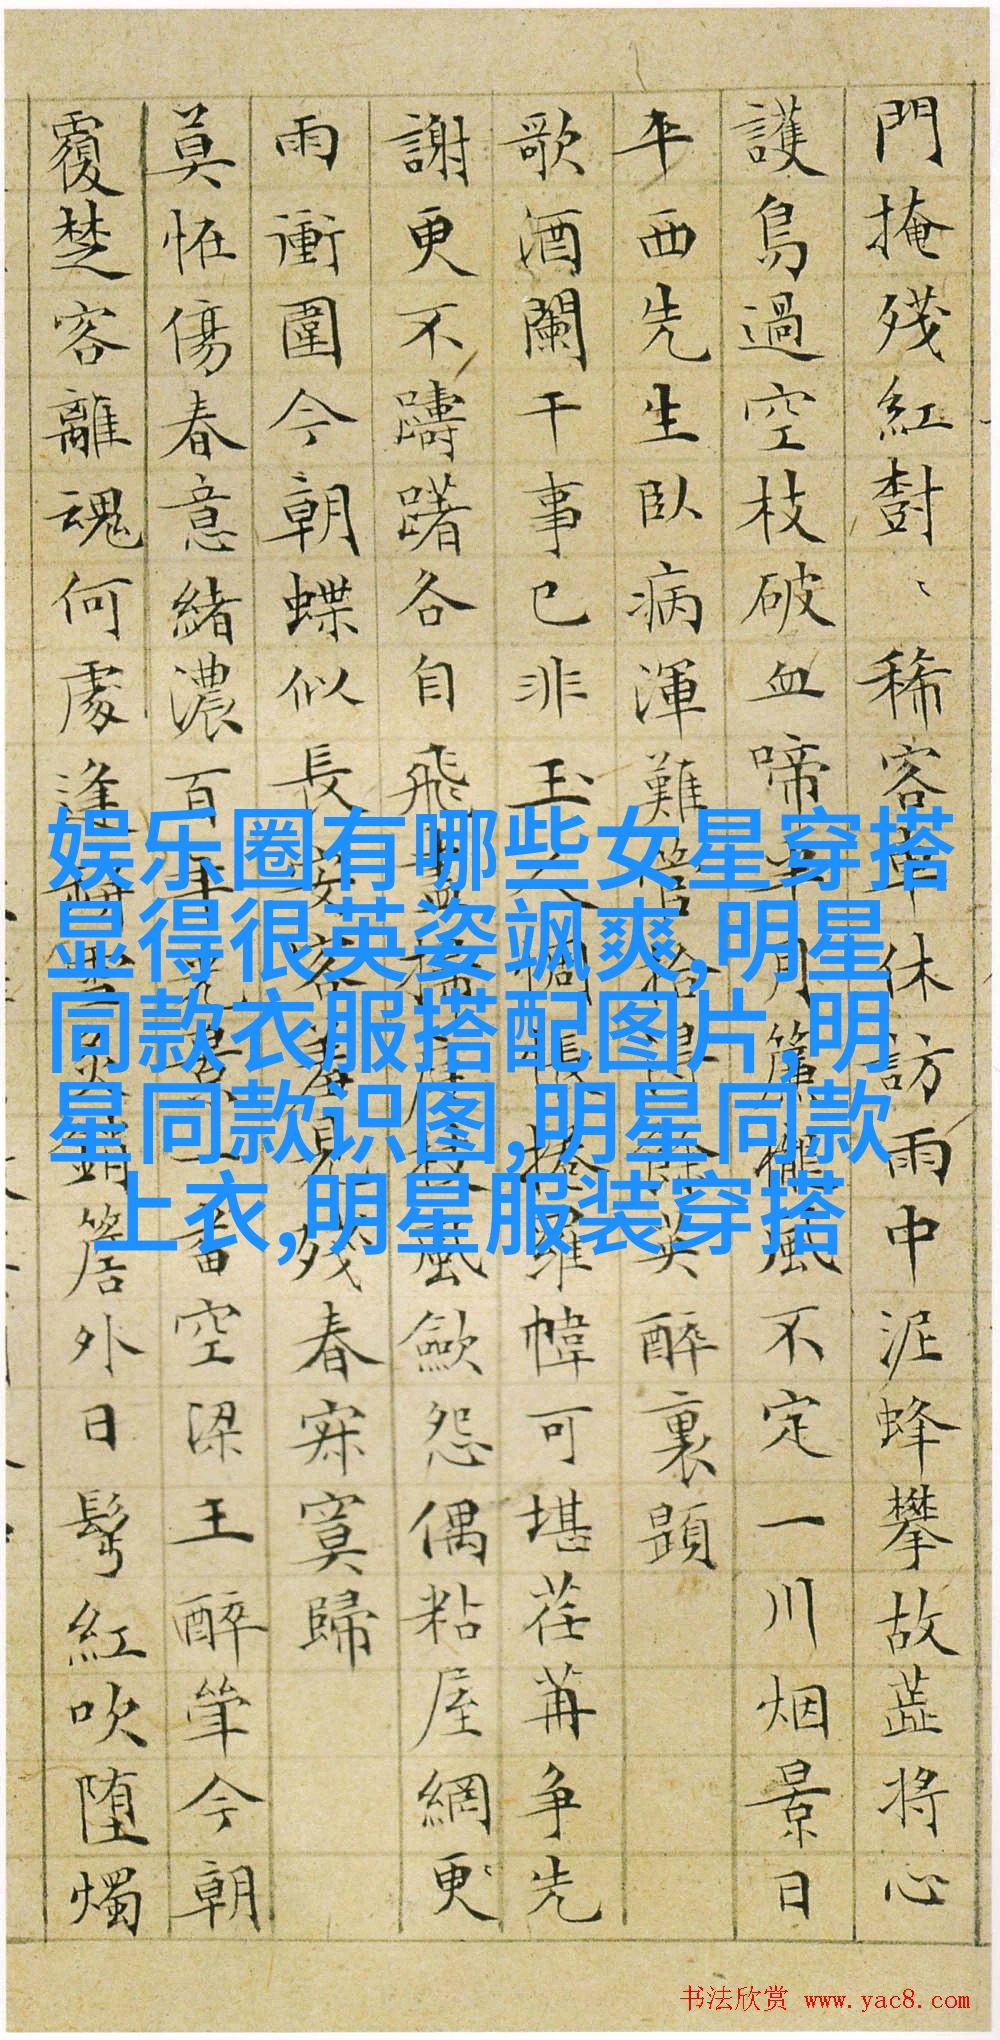 娱乐圈有哪些女星穿搭
显得很英姿飒爽,明星
同款衣服搭配图片,明
星同款识图,明星同款
上衣,明星服装穿搭
門掩殘紅樹〻稀客車休訪雨中泥蜂攀故蕋將心
護鳥過空枝破血啼半月簾櫳風不定一川烟景日
平西先生臥病渾難管拾得餘英醉裏題
歌酒闌干事已非玉人惆悵捲羅幃可堪荏苒争先
謝更不躊躇各自飛盡風歛怨偶粘屋網更
雨衝圍今朝蝶似長安客羞見殘春寂寞歸
莫恠傷春意緒濃百年光景一番空梁王醉今朝
覆楚客離魂何處逢銷簷外日紅吹堕燭
书法欣赏 www.yac8.com